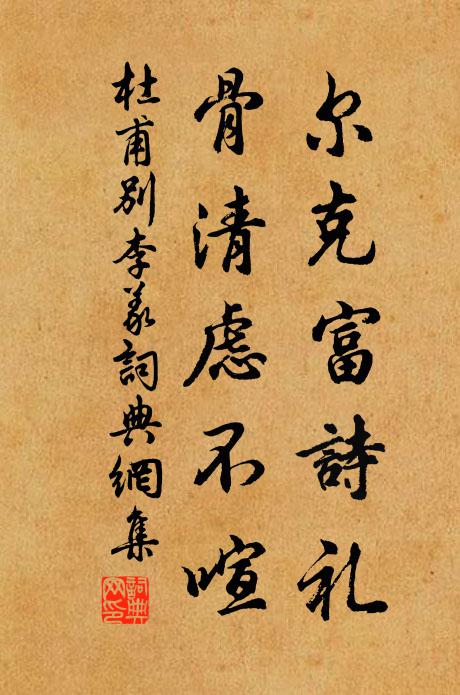 尔克富詩礼
骨清慮不喧
杜甫別李義詞典網集
詞典网印